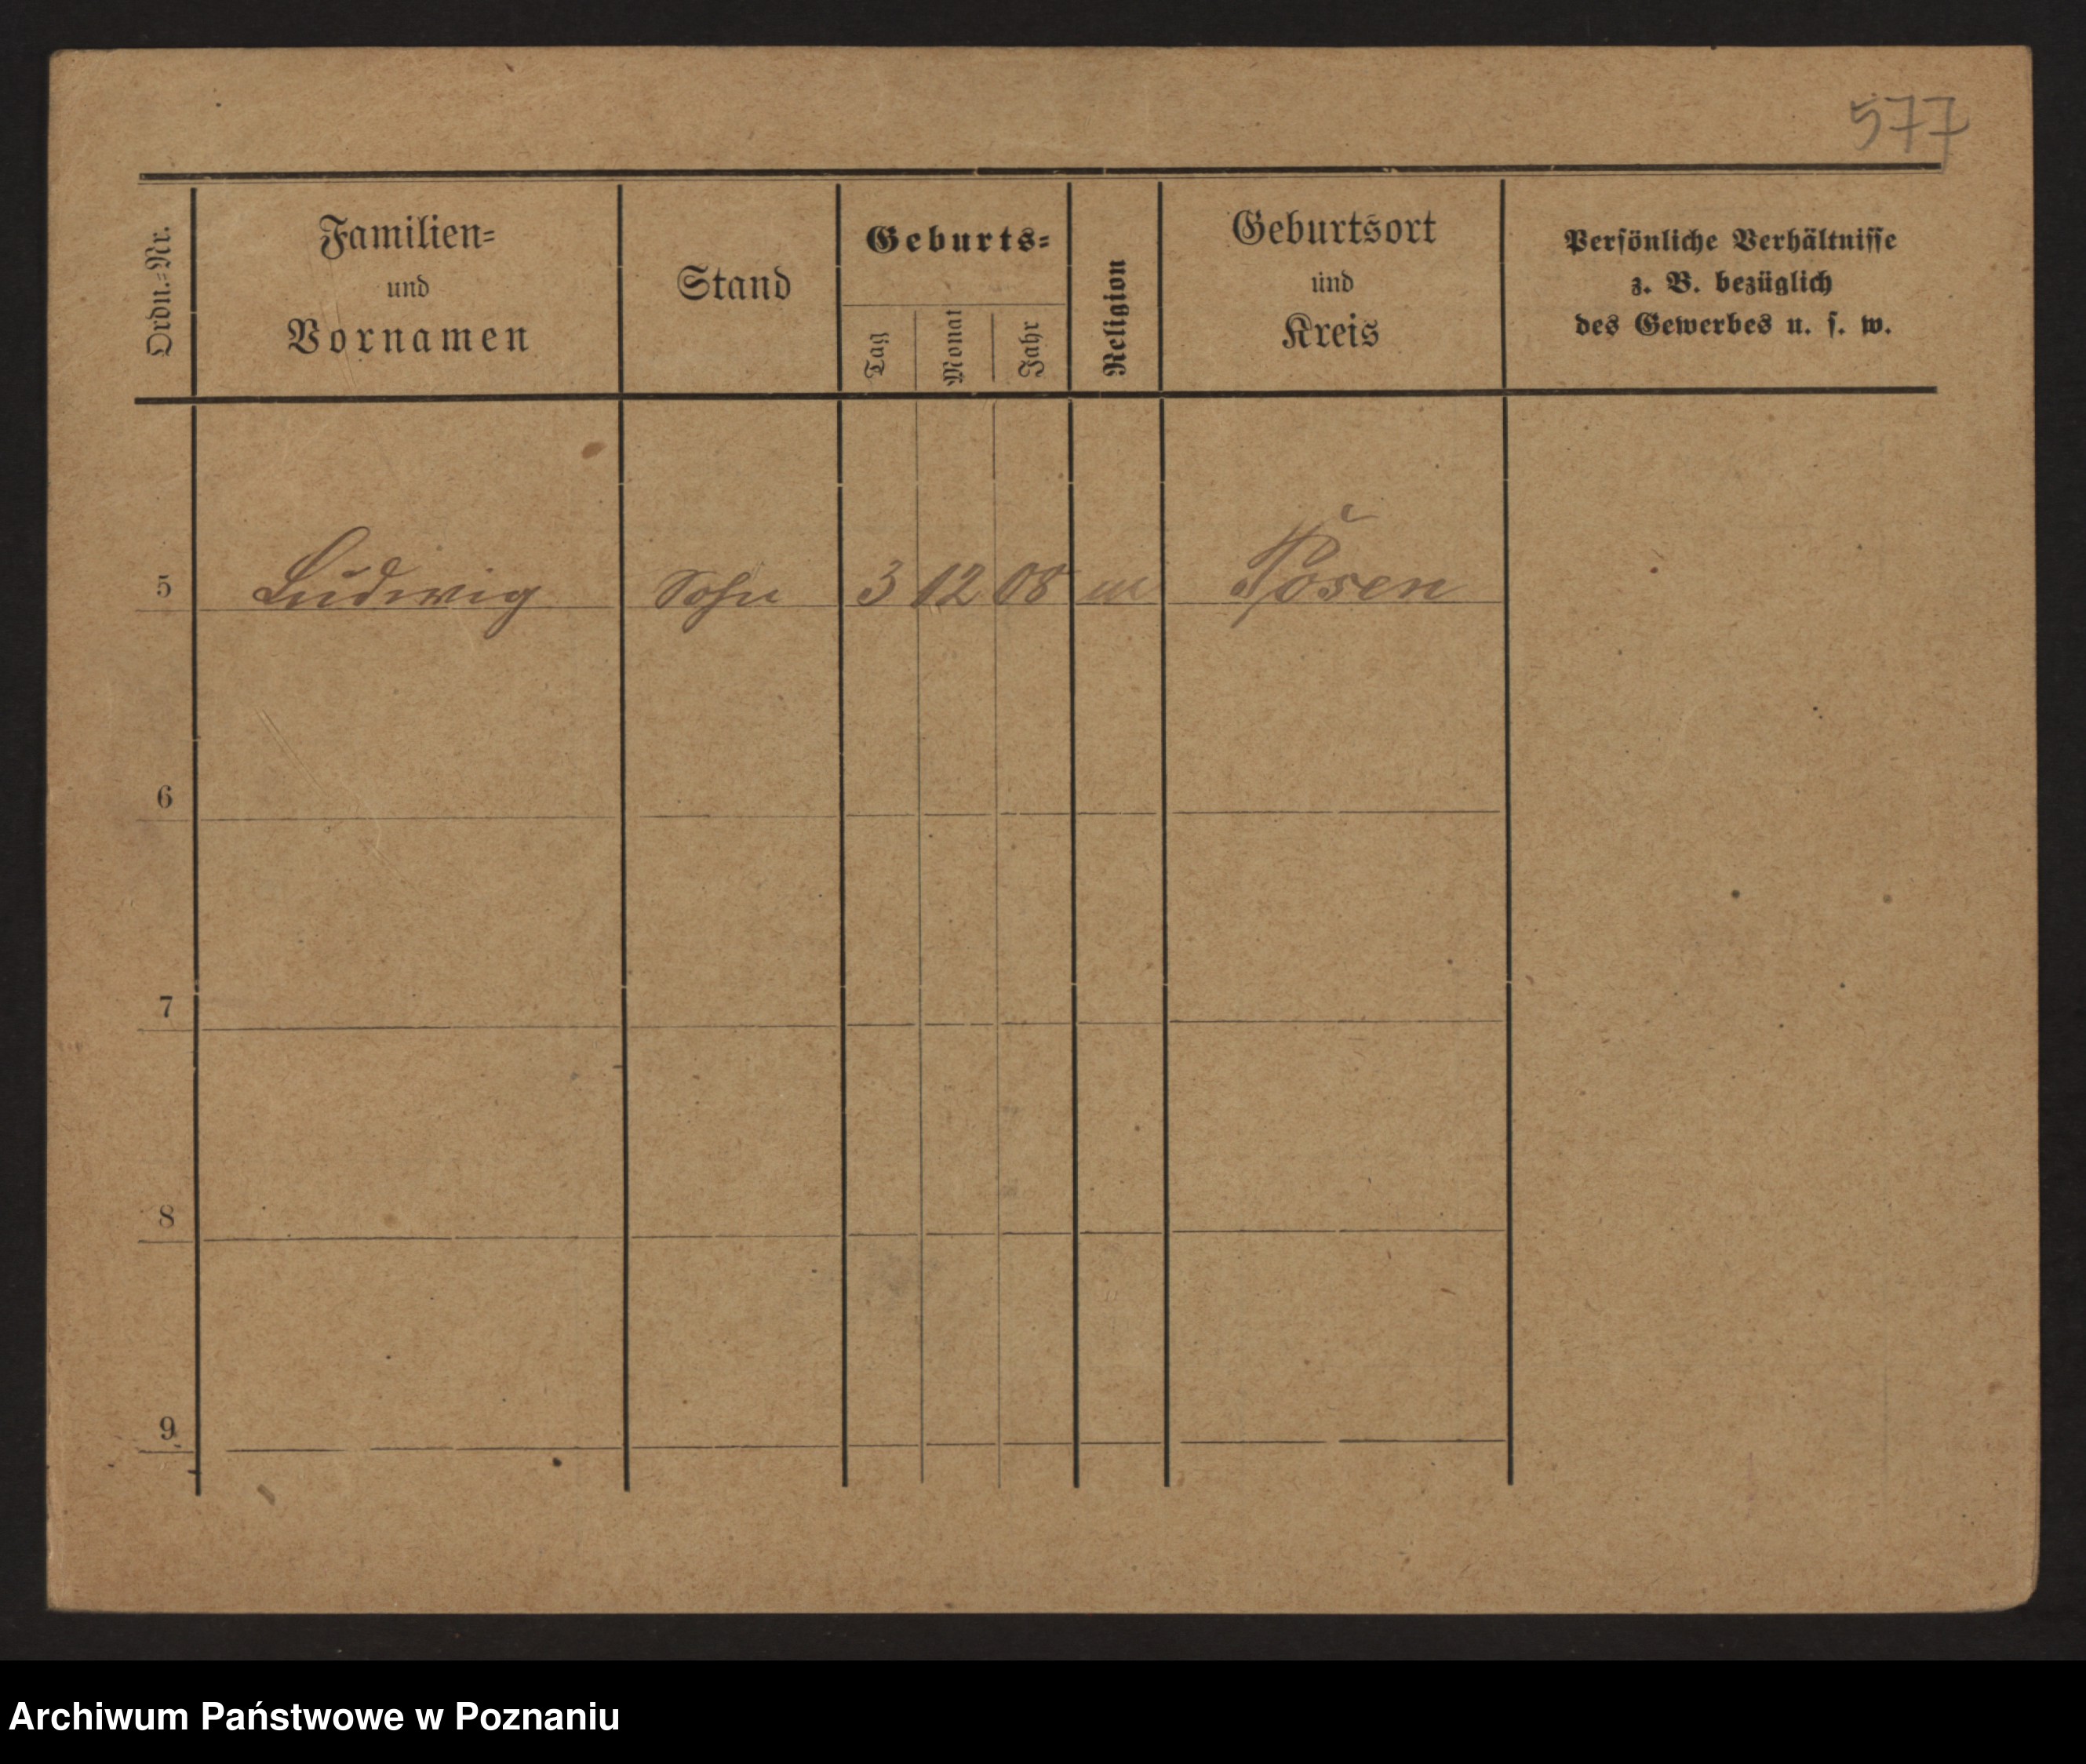 577
Ordn.-Nr.
Familien-
und
Vornamen
Stand
Geburts-
Tag
Monat
Jahr
Religion
Geburtsort
und
Kreis
Persönliche Verhältnisse
z. B. bezüglich
des Gewerbes u. s. w.
5 Ludwig Sohn 3 12 08 Posen
6
7
8
9
Archiwum Państwowe w Poznaniu